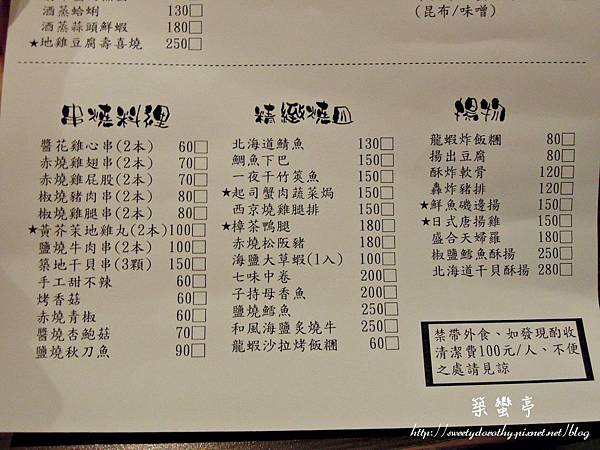 酒蒸蛤蜊 130□
酒蒸蒜頭鮮蝦 180□
★地雞豆腐壽喜燒 250□
(昆布/味噌)
串燒料理
醬花雞心串(2本) 60□
赤燒雞翅串(2本) 70□
赤燒雞屁股(2本) 70□
椒燒豬肉串(2本) 80□
椒燒雞腿串(2本) 80□
★黃芥茉地雞丸(2本)100□
鹽燒牛肉串(2本) 100□
築地干貝串(3顆) 150□
手工甜不辣 60□
烤香菇 60□
赤燒青椒 60□
醬燒杏鮑菇 70□
鹽燒秋刀魚 90□
精緻燒皿
北海道鯖魚 130□
鯛魚下巴 150□
一夜干竹筴魚 150□
★起司蟹肉蔬菜焗 150□
西京燒雞腿排 150□
★樟茶鴨腿 180□
赤燒松阪豬 180□
海鹽大草蝦(1入) 100□
七味中卷 200□
子持母香魚 200□
鹽燒鱈魚 250□
和風海鹽炙燒牛 250□
龍蝦沙拉烤飯糰 60□
揚物
龍蝦炸飯糰 80□
揚出豆腐 80□
酥炸軟骨 120□
轟炸豬排 120□
★鮮魚磯邊揚 150□
★日式唐揚雞 150□
盛合天婦羅 180□
椒鹽鱈魚酥揚 250□
北海道干貝酥揚 280□
禁帶外食、如發現酌收
清潔費100元/人、不便
之處請見諒
築蠻亭
http://sweetydorothy.pixnet.net/blog